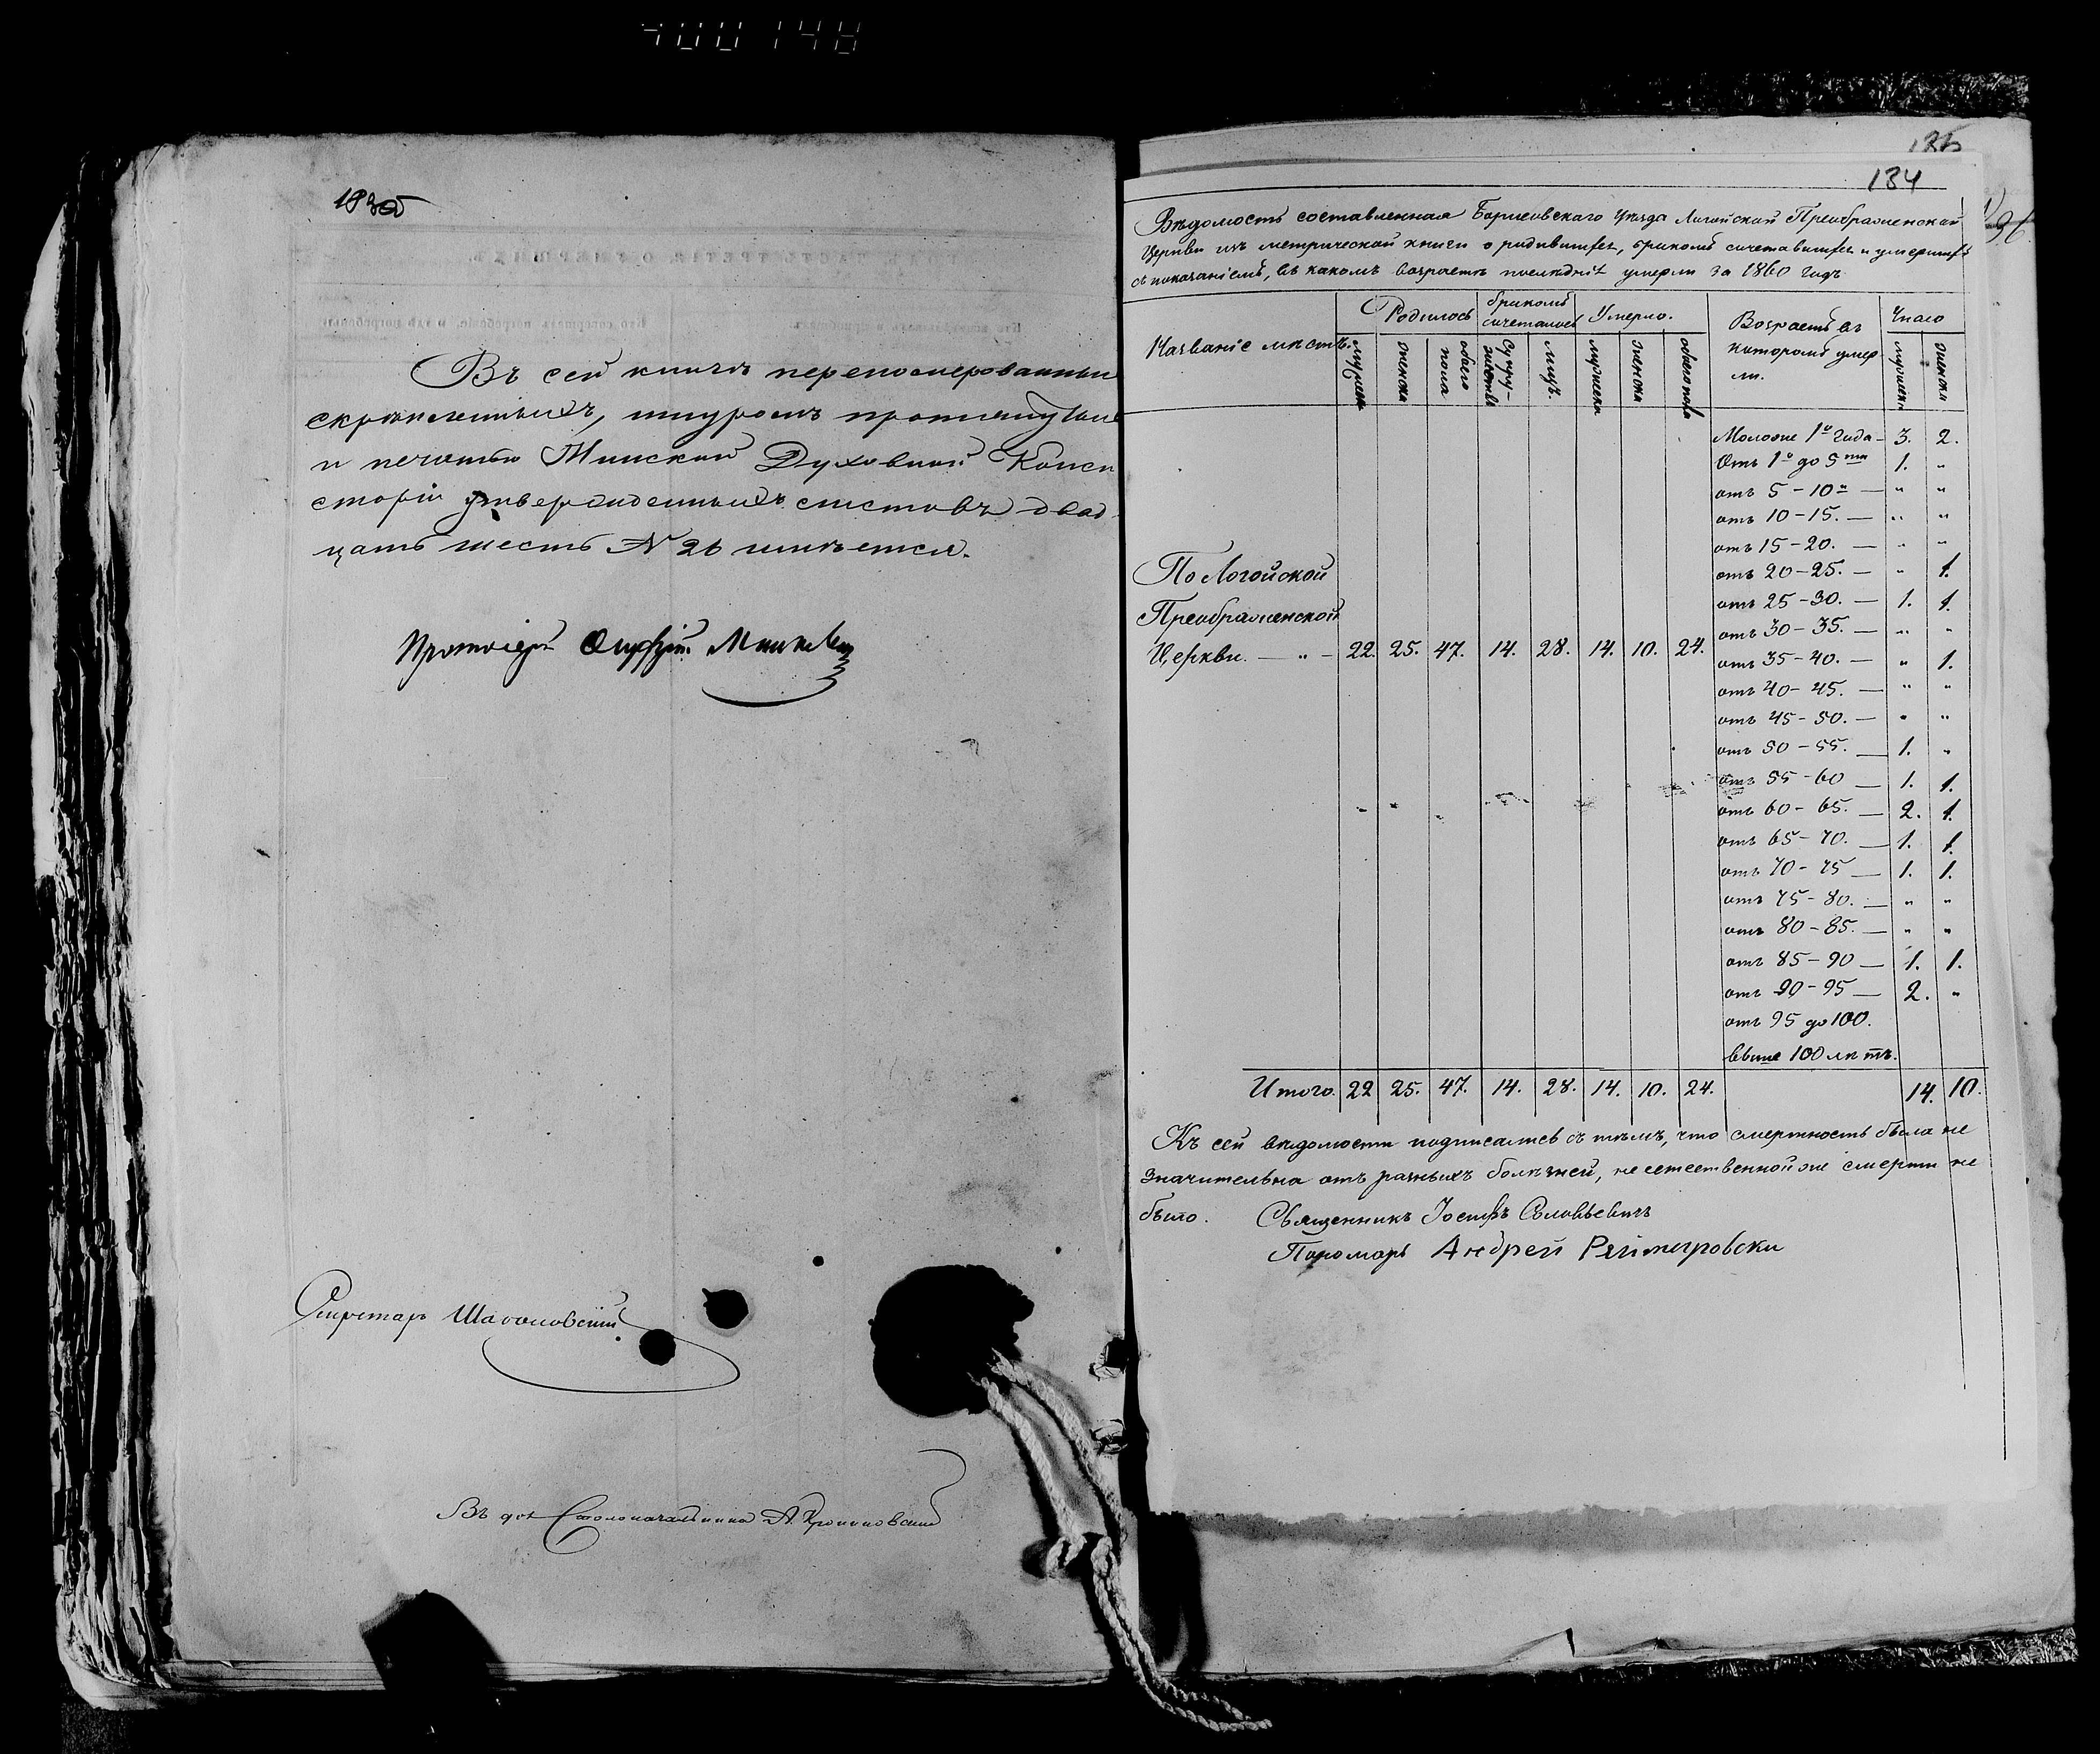 400148
Въ сей книгѣ перепомерованныхъ
скрѣпленныхъ, шнуромъ протянутыхъ
и печатью Минской Духовной Конси
сторіи утвержденныхъ листовъ двад
цать шесть № 26 имѣется.
Протоіерей
Секретарь
Въ дол. Столоначальника А.
134
Вѣдомость составленная Борисовскаго Уѣзда Логойской Преображенской
Церкви изъ метрической книги о родившихся, бракомъ сочетавшихся и умершихъ
съ показаніемъ, въ какомъ возрастѣ послѣдніе умерли за 1860 годъ
Названіе мѣстъ. Родилось бракомъ сочеталось Умерло. Возрастъ въ которомъ умерли. Число
мужеска женска обоего пола Супружествъ лицъ. мужеска женска обоего пола мужеска женска
Моложе 1го года - 3. 2.
Отъ 1го до 5ти 1. "
отъ 5 - 10и — " "
отъ 10 - 15. — " "
отъ 15 - 20. — " "
отъ 20 - 25. — " 1.
отъ 25 - 30. — 1. 1.
отъ 30 - 35. — " "
отъ 35 - 40. — " 1.
отъ 40 - 45. — " "
отъ 45 - 50. — " "
отъ 50 - 55. — 1. "
отъ 55 - 60 — 1. 1.
отъ 60 - 65. — 2. 1.
отъ 65 - 70. — 1. 1.
отъ 70 - 75 — 1. 1.
отъ 75 - 80. — " "
отъ 80 - 85. — " "
отъ 85 - 90 — 1. 1.
отъ 90 - 95 — 2. "
отъ 95 до 100.
выше 100 лѣтъ.
По Логойской
Преображенской
Церкви. — " — 22. 25. 47. 14. 28. 14. 10. 24.
Итого. 22 25. 47. 14. 28. 14. 10. 24. 14. 10.
Къ сей вѣдомости подписались съ тѣмъ, что смертность была не
значительна отъ разныхъ болѣзней, неестественной же смерти не
было. Священникъ Іосифъ Соловьевичъ
Пономарь Андрей